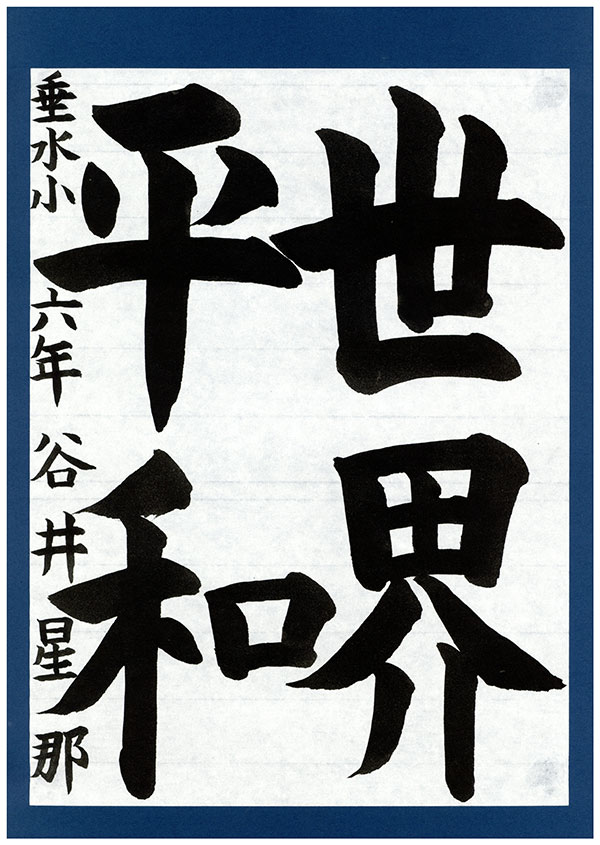 世界
平和
垂水小 六年 谷井星那